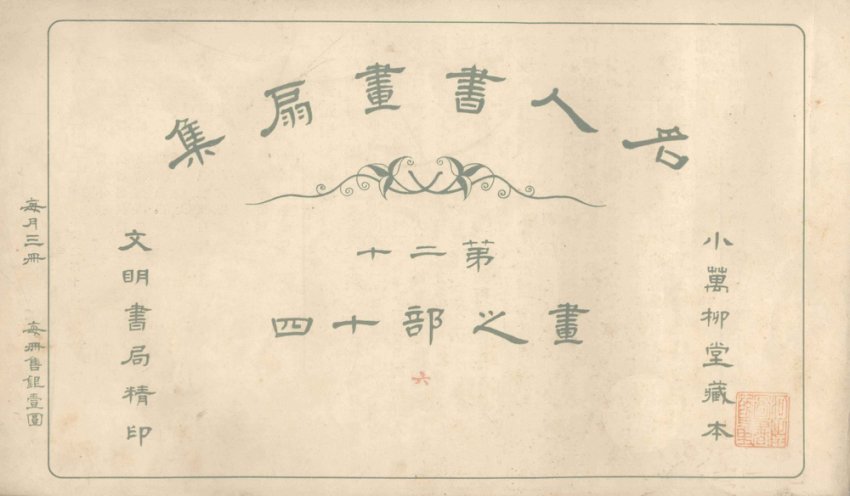 名人書畫扇集
小萬柳堂藏本
第二十
畫之部十四
六
文明書局精印
每月三冊
每冊售銀壹圓